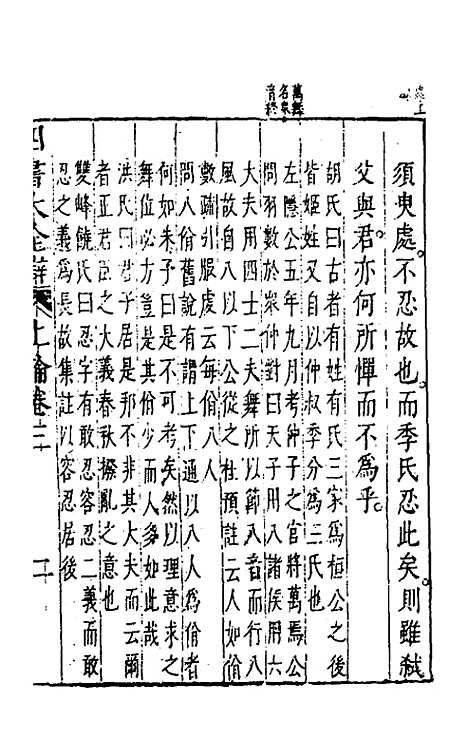 須臾處不忍故也而季氏忍此矣則雖弑
父與君亦何所憚而不爲乎
胡氏曰古者有姓有氏三家爲桓公之後
皆姬姓又自以仲叔季分爲三氏也
左隱公五年九月考仲子之宮將萬焉公
問羽數於衆仲對曰天子用八諸侯用六
大夫用四士二夫舞所以節八音而行八
風故自八以下公從之杜預註云人如佾
數疏引服虔云每佾八人
問八佾舊說有謂上下通以八人爲佾者
何如朱子曰是不可考矣然以理意求之
舞位必方豈是其佾少而人多如此哉
洪氏曰君子居是邦不非其大夫而云爾
者正君臣之大義春秋撥亂之意也
雙峰饒氏曰忍字有敢忍容忍二義而敢
忍之義爲長故集註以容忍居後
四書大全辯 上論卷三 二
萬舞
名衆
音終